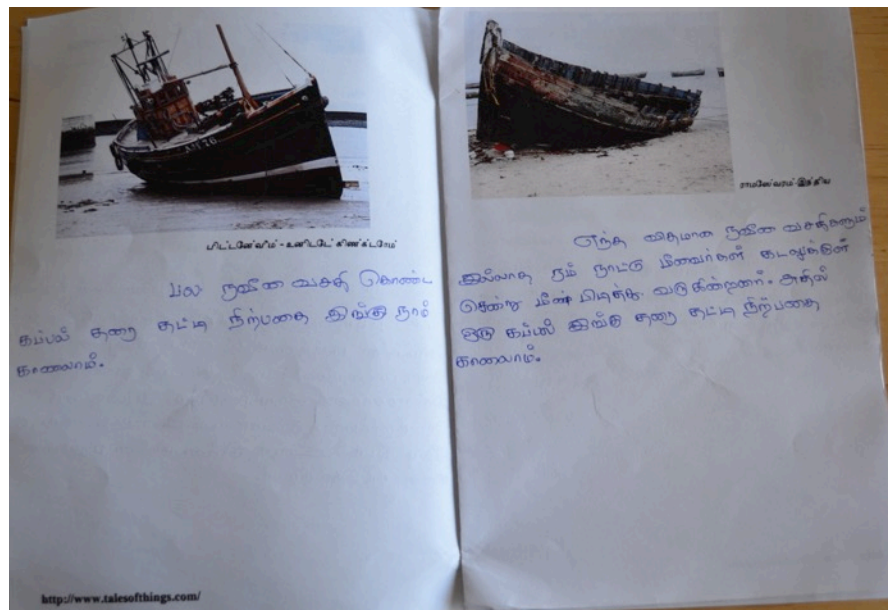 AH 76
பிட்டன்வீம் - உனிடடே கிண்க்டோம்
பல நவீன வசதி கொண்ட
கப்பல் தரை தட்டி நிற்பதை இங்கு நாம்
காணலாம்.
http://www.talesofthings.com/
ராமனேவரம்-இந்திய
எந்த விதமான நவீன வசதிகளும்
இல்லாத நம் நாட்டு மீனவர்கள் கடலுக்குள்
சென்று மீன் பிடித்து வருகின்றனர். அதில்
ஒரு கப்பல் இங்கு தரை தட்டி நிற்பதை
காணலாம்.